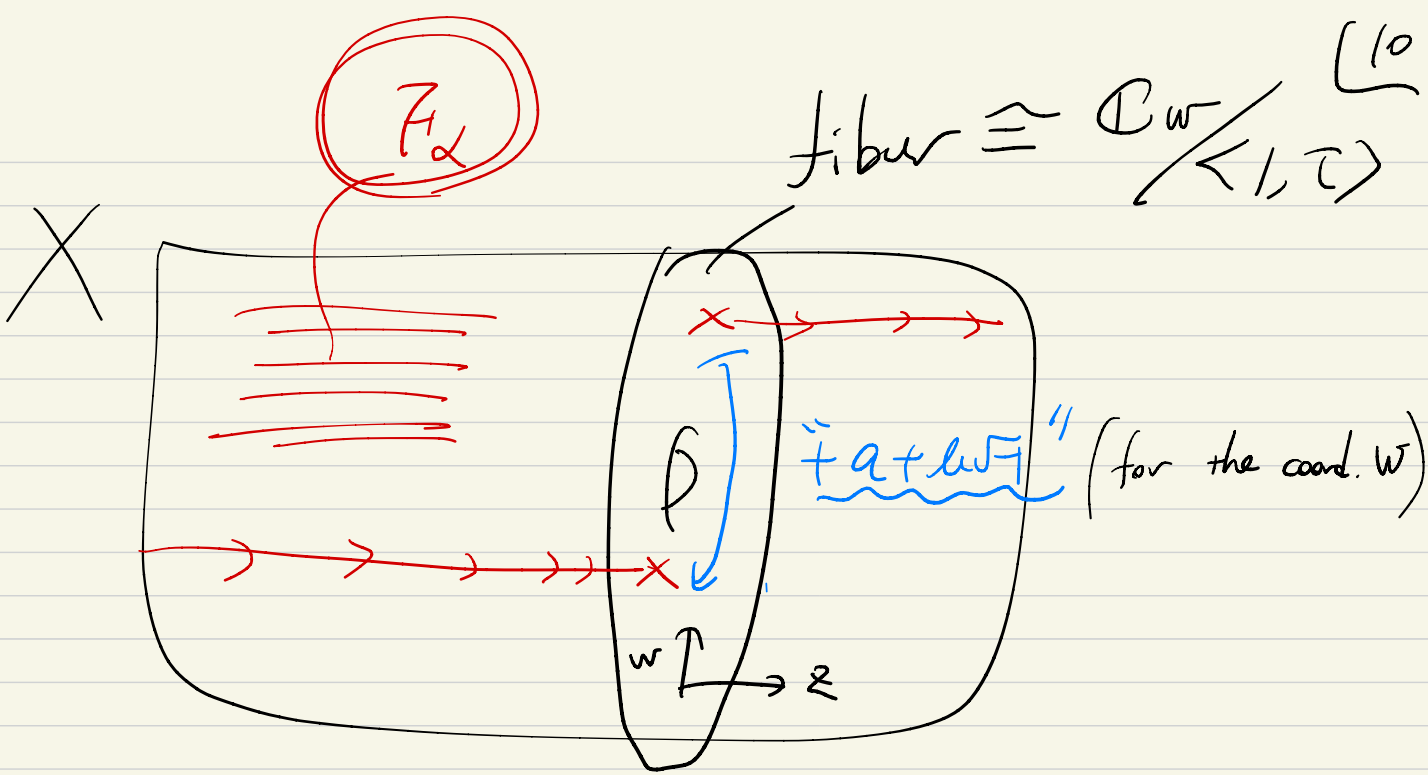 [10
fiber ≅ ℂw/<1, τ>
ℱα
X
"+a+b√-1" (for the coord. w)
w
z